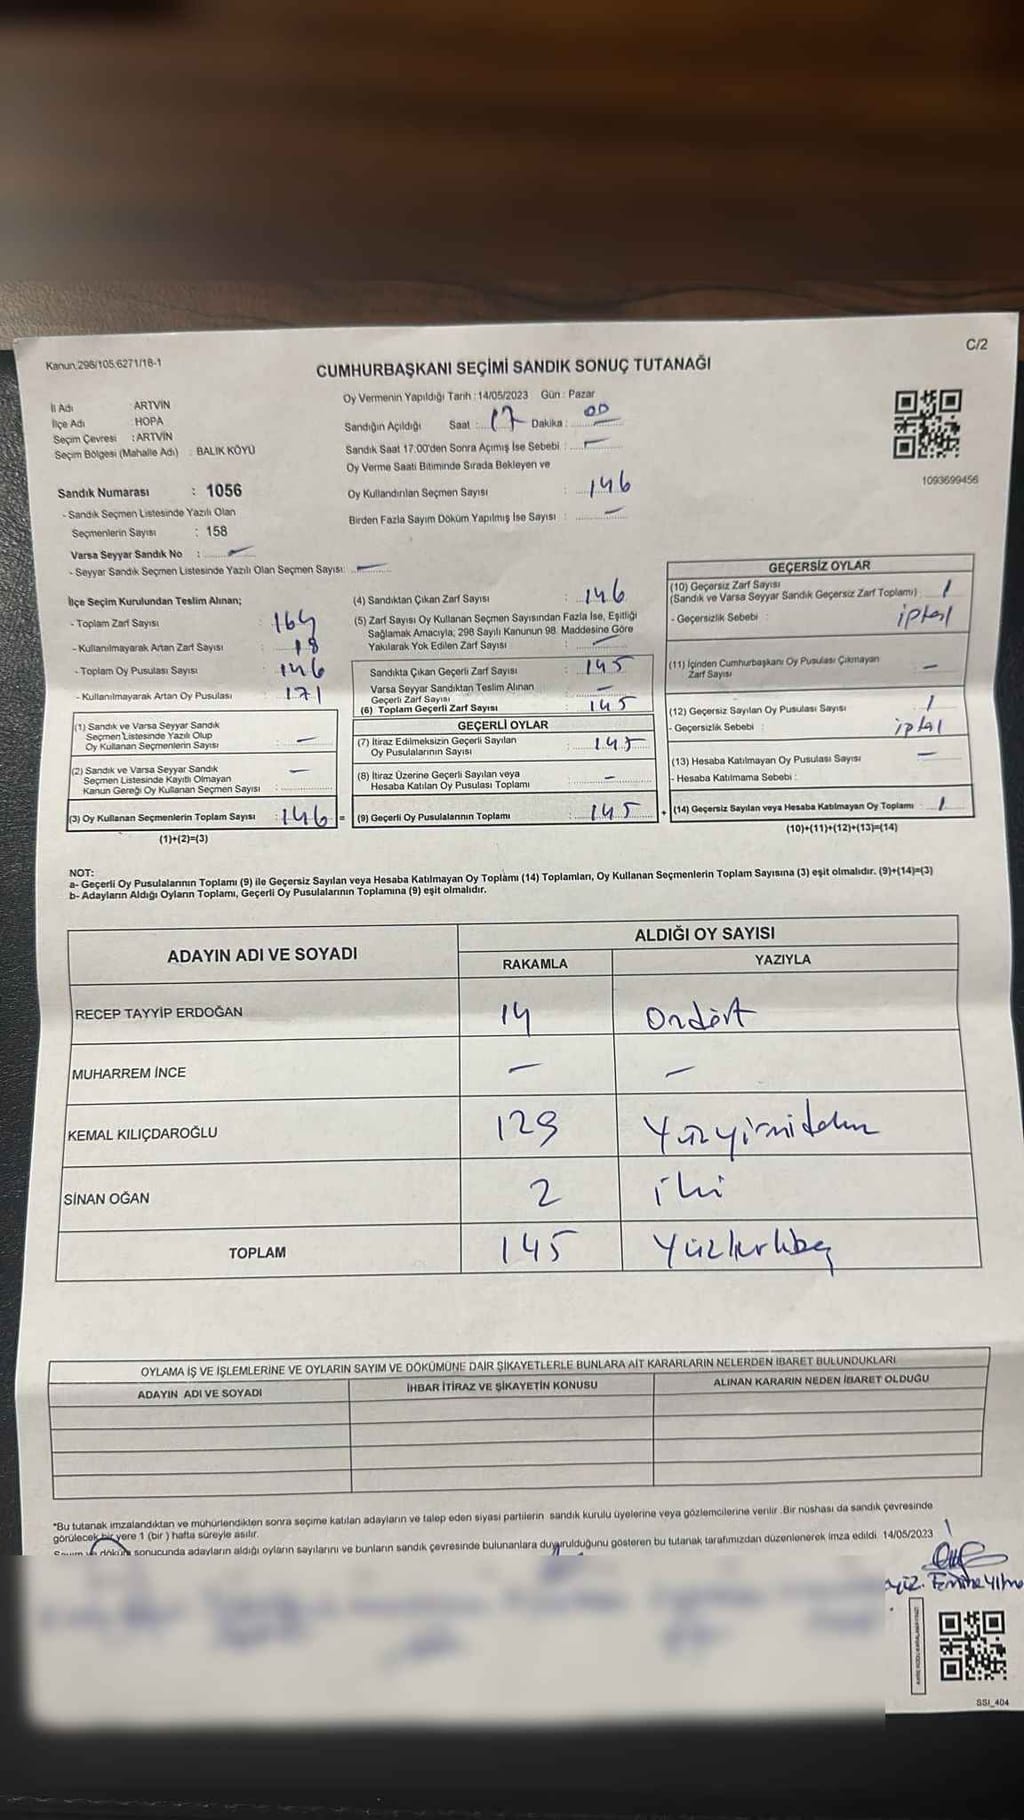 Kanun:298/105,6271/18-1
C/2
CUMHURBAŞKANI SEÇİMİ SANDIK SONUÇ TUTANAĞI
İl Adı ARTVİN
İlçe Adı HOPA
Seçim Çevresi : ARTVİN
Seçim Bölgesi (Mahalle Adı) : BALIK KÖYÜ
Oy Vermenin Yapıldığı Tarih :14/05/2023 Gün : Pazar
Sandığın Açıldığı Saat : 17 Dakika : 00
Sandık Saat 17:00'den Sonra Açımış İse Sebebi : —
Oy Verme Saati Bitiminde Sırada Bekleyen ve
Oy Kullandırılan Seçmen Sayısı : 146
Birden Fazla Sayım Döküm Yapılmış İse Sayısı : —
1093699456
Sandık Numarası : 1056
- Sandık Seçmen Listesinde Yazılı Olan
Seçmenlerin Sayısı : 158
Varsa Seyyar Sandık No : —
- Seyyar Sandık Seçmen Listesinde Yazılı Olan Seçmen Sayısı: —
İlçe Seçim Kurulundan Teslim Alınan;
- Toplam Zarf Sayısı : 164
- Kullanılmayarak Artan Zarf Sayısı : 18
- Toplam Oy Pusulası Sayısı : 146
- Kullanılmayarak Artan Oy Pusulası : 171
(1) Sandık ve Varsa Seyyar Sandık
Seçmen Listesinde Yazılı Olup
Oy Kullanan Seçmenlerin Sayısı : —
(2) Sandık ve Varsa Seyyar Sandık
Seçmen Listesinde Kayıtlı Olmayan
Kanun Gereği Oy Kullanan Seçmen Sayısı : —
(3) Oy Kullanan Seçmenlerin Toplam Sayısı : 146 =
(1)+(2)=(3)
(4) Sandıktan Çıkan Zarf Sayısı : 146
(5) Zarf Sayısı Oy Kullanan Seçmen Sayısından Fazla İse, Eşitliği
Sağlamak Amacıyla; 298 Sayılı Kanunun 98. Maddesine Göre
Yakılarak Yok Edilen Zarf Sayısı : —
Sandıkta Çıkan Geçerli Zarf Sayısı : 145
Varsa Seyyar Sandıktan Teslim Alınan
Geçerli Zarf Sayısı : —
(6) Toplam Geçerli Zarf Sayısı : 145
GEÇERLİ OYLAR
(7) İtiraz Edilmeksizin Geçerli Sayılan
Oy Pusulalarının Sayısı : 145
(8) İtiraz Üzerine Geçerli Sayılan veya
Hesaba Katılan Oy Pusulası Toplamı : —
(9) Geçerli Oy Pusulalarının Toplamı : 145 +
GEÇERSİZ OYLAR
(10) Geçersiz Zarf Sayısı
(Sandık ve Varsa Seyyar Sandık Geçersiz Zarf Toplamı) : 1
- Geçersizlik Sebebi : iptal
(11) İçinden Cumhurbaşkanı Oy Pusulası Çıkmayan
Zarf Sayısı —
(12) Geçersiz Sayılan Oy Pusulası Sayısı : 1
- Geçersizlik Sebebi : iptal
(13) Hesaba Katılmayan Oy Pusulası Sayısı : —
- Hesaba Katılmama Sebebi :
(14) Geçersiz Sayılan veya Hesaba Katılmayan Oy Toplamı : 1
(10)+(11)+(12)+(13)=(14)
NOT:
a- Geçerli Oy Pusulalarının Toplamı (9) ile Geçersiz Sayılan veya Hesaba Katılmayan Oy Toplamı (14) Toplamları, Oy Kullanan Seçmenlerin Toplam Sayısına (3) eşit olmalıdır. (9)+(14)=(3)
b- Adayların Aldığı Oyların Toplamı, Geçerli Oy Pusulalarının Toplamına (9) eşit olmalıdır.
ADAYIN ADI VE SOYADI ALDIĞI OY SAYISI
RAKAMLA YAZIYLA
RECEP TAYYİP ERDOĞAN 14 Ondört
MUHARREM İNCE — —
KEMAL KILIÇDAROĞLU 129
SİNAN OĞAN 2 iki
TOPLAM 145
OYLAMA İŞ VE İŞLEMLERİNE VE OYLARIN SAYIM VE DÖKÜMÜNE DAİR ŞİKAYETLERLE BUNLARA AİT KARARLARIN NELERDEN İBARET BULUNDUKLARI
ADAYIN ADI VE SOYADI İHBAR İTİRAZ VE ŞİKAYETİN KONUSU ALINAN KARARIN NEDEN İBARET OLDUĞU
*Bu tutanak imzalandıktan ve mühürlendikten sonra seçime katılan adayların ve talep eden siyasi partilerin sandık kurulu üyelerine veya gözlemcilerine verilir .Bir nüshası da sandık çevresinde
görülecek bir yere 1 (bir ) hafta süreyle asılır.
Sayım ve döküm sonucunda adayların aldığı oyların sayılarını ve bunların sandık çevresinde bulunanlara duyurulduğunu gösteren bu tutanak tarafımızdan düzenlenerek imza edildi. 14/05/2023
SSI_404